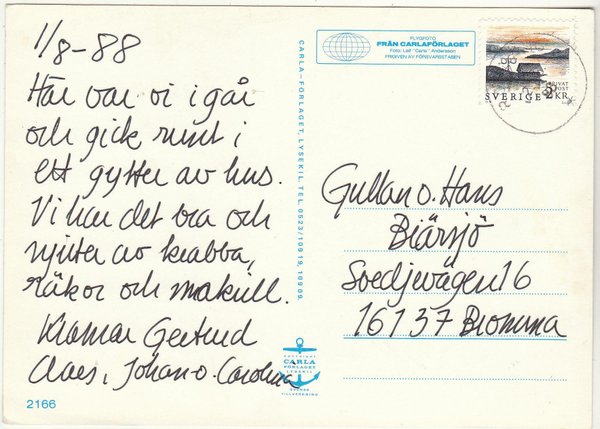 1/8-88
Här var vi igår
och gick runt i
ett gytter av hus.
Vi har det bra och
njuter av krabba,
räkor och makrill.
Kramar Gertrud
Claes, Johan o. Carolina
2166
CARLA-FÖRLAGET, LYSEKIL. TEL. 0523/10919, 10909.
FLYGFOTO
FRÅN CARLAFÖRLAGET
Foto: Leif "Carla" Andersson
FRIGIVEN AV FÖRSVARSSTABEN
PRIVAT
POST
SVERIGE 2 KR
Gullan o. Hans
Biärsjö
Svedjevägen 16
16137 Bromma
COPYRIGHT
CARLA
FÖRLAGET
LYSEKIL
SVENSK
TILLVERKNING